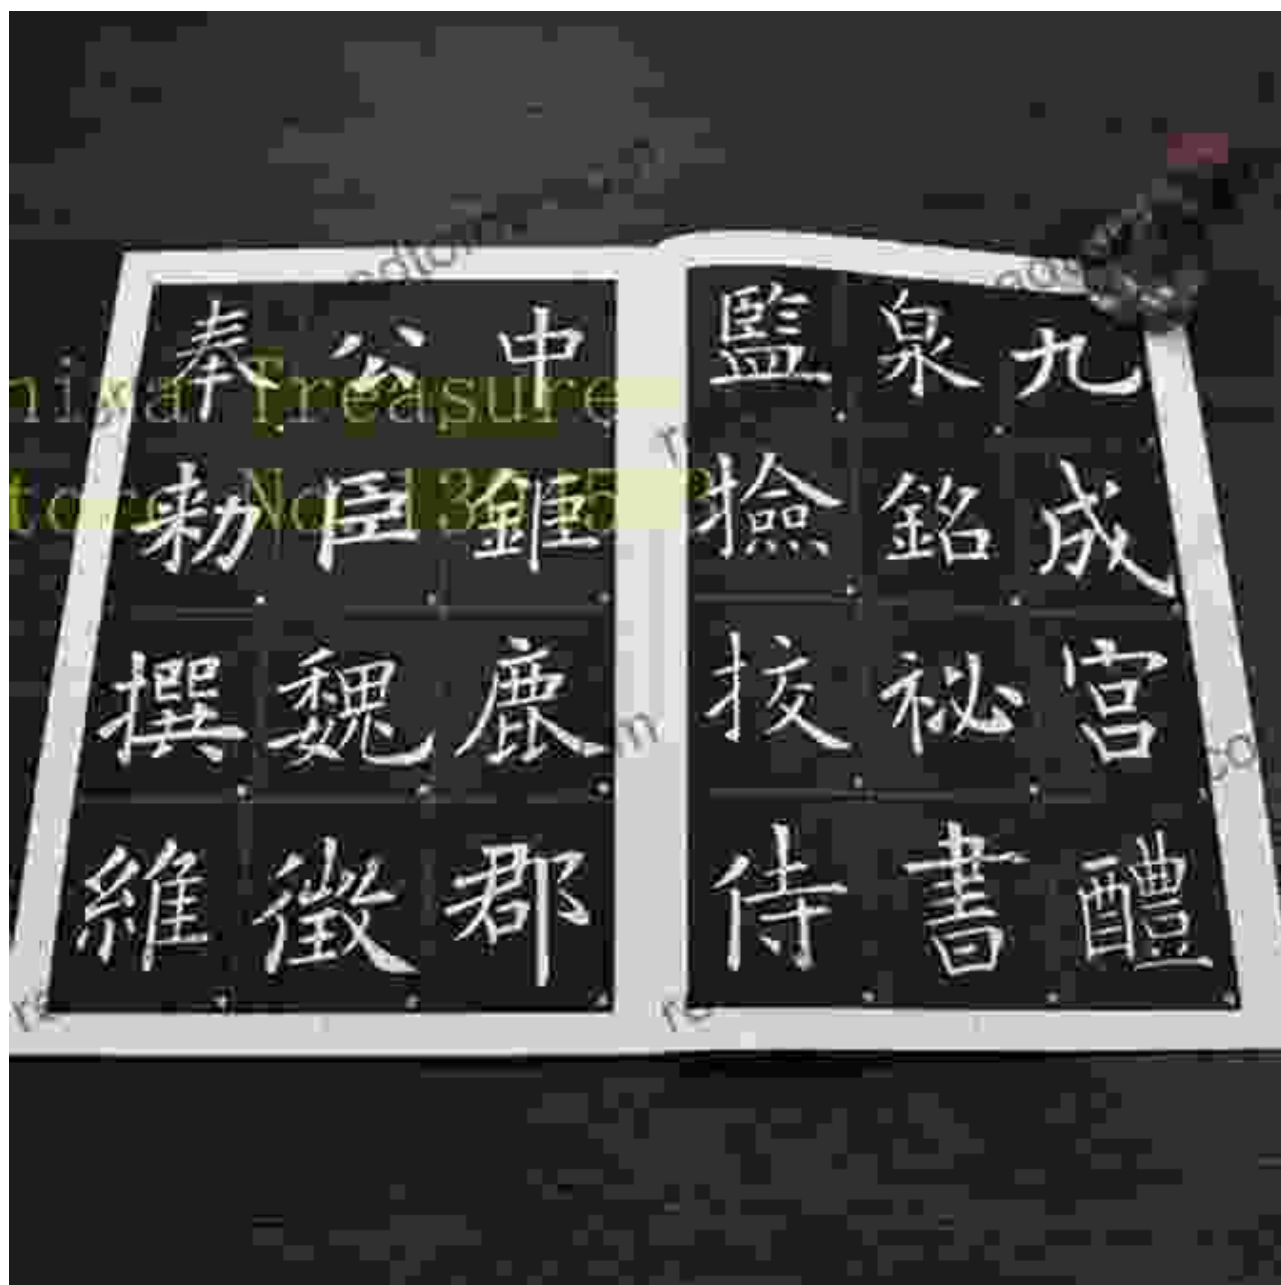 九成宮醴
泉銘祕書
監撿挍侍
中鉅鹿郡
公臣魏徵
奉勑撰維
Treasure